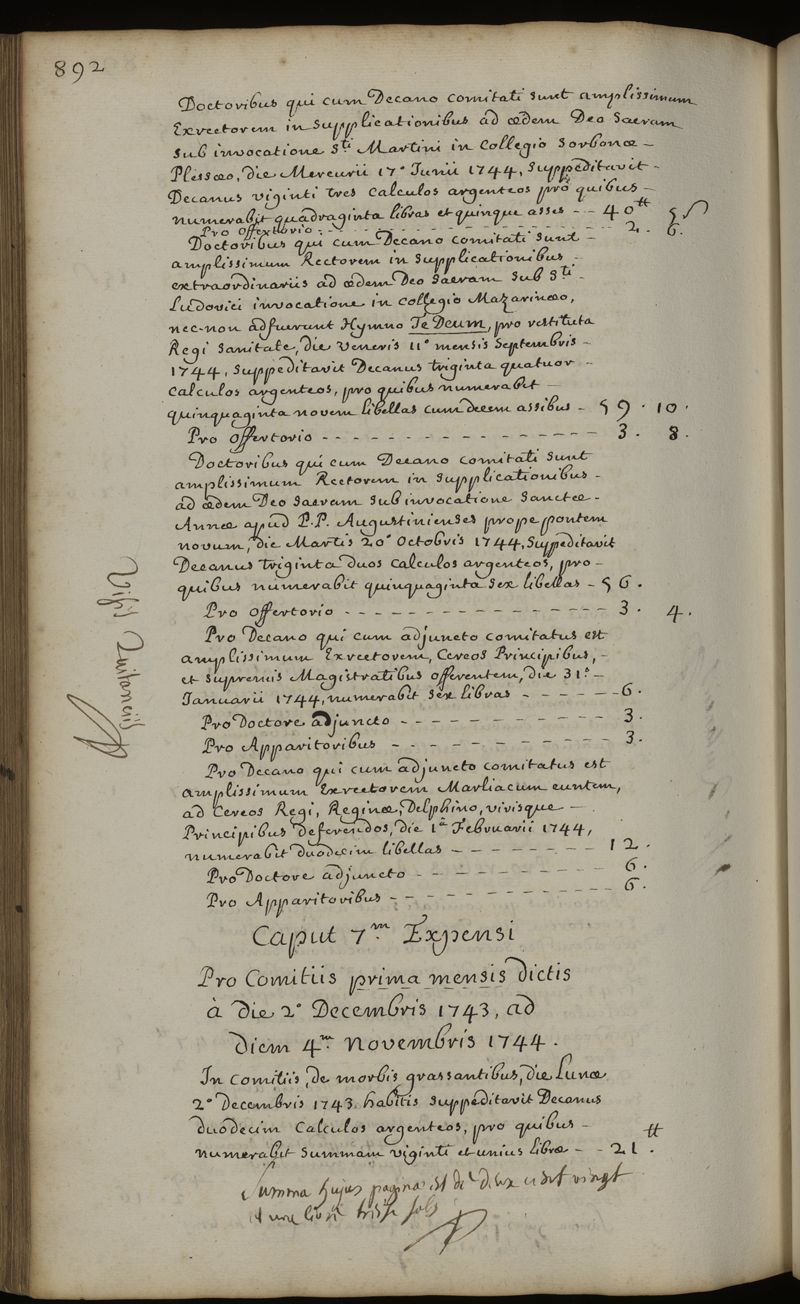 892
Doctoribus qui cum Decano comitati sunt amplissimum
Exrectorem in supplicationibus ad ædem Deo Sacram
sub invocatione Sti Martini in Collegio Sorbonæ -
Plessæo, die Mercurii 17° Junii 1744, suppeditavit -
Decanus viginti tres calculos argenteos pro quibus -
numerabit quadraginta libras et quinque asses - - 40tt 5s
Pro offertorio - - - - - - - - - - - - 2. 6.
Doctoribus qui cum Decano comitati sunt -
amplissimum Rectorem in supplicationibus -
extraordinariis ad ædem Deo Sacram sub Sti -
Ludovici invocatione in Collegio Mazarinæo,
nec-non adfuerunt Hymno Te Deum, pro restituta
Regi sanitate, die Veneris 11° mensis Septembris -
1744, suppeditavit Decanus triginta quatuor -
calculos argenteos, pro quibus numerabit -
quinquaginta novem libellas cum decem assibus - 59. 10.
Pro offertorio - - - - - - - - - - - - - - - 3. 8.
Doctoribus qui cum Decano comitati sunt
amplissimum Rectorem in supplicationibus -
ad ædem Deo Sacram sub invocatione Sanctæ -
Annæ apud P.P. Augustinienses prope pontem
novum, die Martis 20° Octobris 1744, suppeditavit
Decanus triginta duos calculos argenteos, pro -
quibus numerabit quinquaginta sex libellas - 56.
Pro offertorio - - - - - - - - - - - - - - - 3. 4.
Pro Decano qui cum adjuncto comitatus est
amplissimum Exrectorem, Cereos Principibus, -
et supremis Magistratibus offerentem, die 31° -
Januarii 1744, numerabit sex libras - - - - - - 6.
Pro Doctore adjuncto - - - - - - - - - - - 3.
Pro Apparitoribus - - - - - - - - - - - 3.
Pro Decano qui cum adjuncto comitatus est
amplissimum Exrectorem Marliacum euntem,
ad Cereos Regi, Reginæ, Delphino, vivisque -
Principibus deferendos, die 1a Februarii 1744,
numerabit duodecim libellas - - - - - - - - 12.
Pro Doctore adjuncto - - - - - - - - - - 6.
Pro Apparitoribus - - - - - - - - - - - 6.
Visis Quitanciis
Caput 7m Expensi
Pro Comitiis prima mensis dictis
à die 2° Decembris 1743, ad
diem 4m Novembris 1744.
In comitiis, de morbis grassantibus, die Lunæ
2° Decembris 1743. habitis suppeditavit Decanus
duodecim calculos argenteos, pro quibus -
numerabit summam viginti et unius libræ - - 21tt.
Summa hujus paginæ est de deux cent vingt
et une livre treize sols